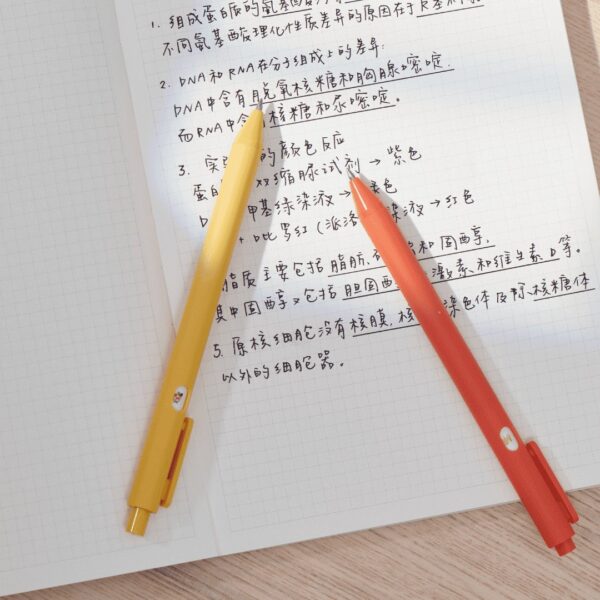 1. 组成蛋白质的氨基
不同氨基酸理化性质差异的原因在于R基不同。
2. DNA和RNA在分子组成上的差异:
DNA中含有脱氧核糖和胸腺嘧啶.
而RNA中含 核糖和尿嘧啶。
3. 实 的颜色反应
蛋白 双缩脲试剂→紫色
D 甲基绿染液→ 色
+吡罗红(派洛 染液→红色
脂质主要包括脂肪, 和固醇,
其中固醇又包括胆固醇 激素、和维生素D等。
5. 原核细胞没有核膜, 核 染色体及除核糖体
以外的细胞器。